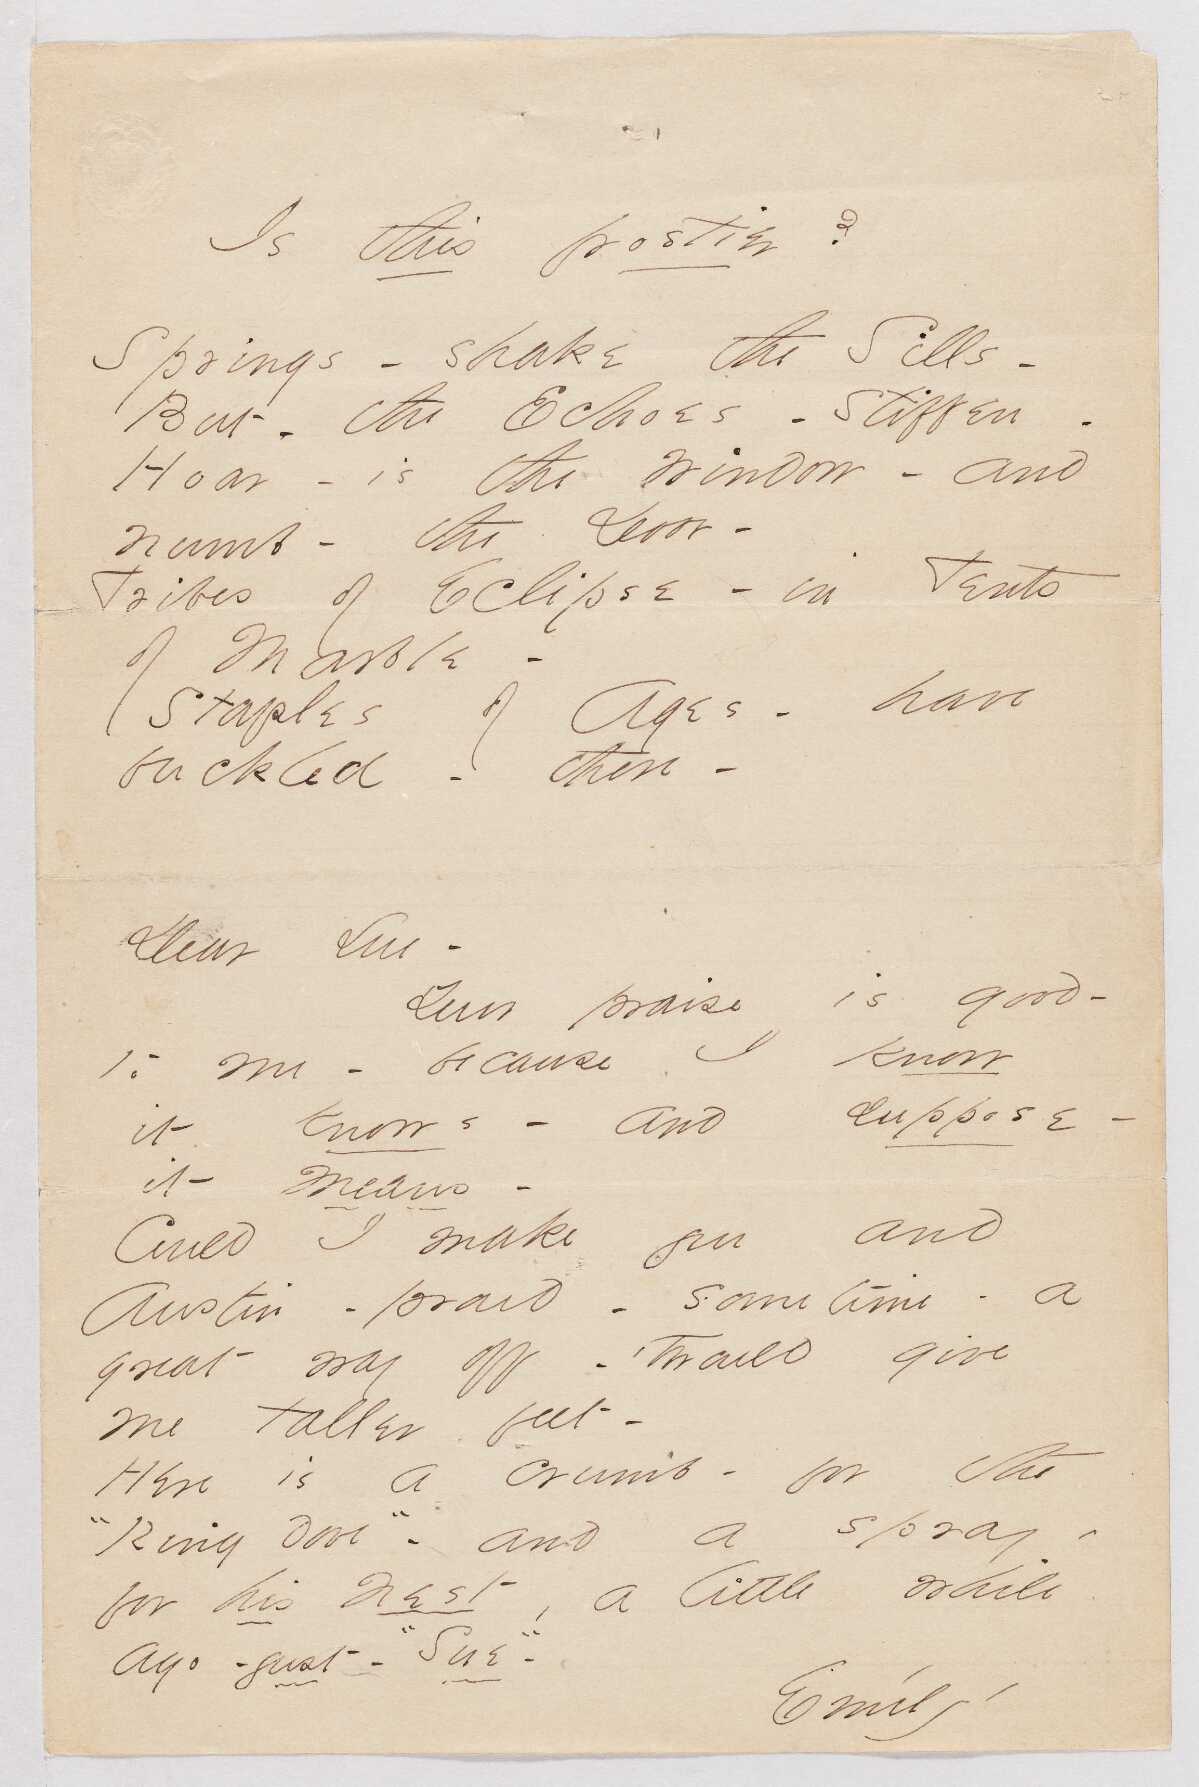 Is this frostier?
Springs - shake the Sills -
But - the Echoes - stiffen -
Hoar - is the Window - and
numb - the Door -
Tribes of Eclipse - in Tents
of Marble -
Staples of Ages - have
buckled - there -
Dear Sue -
Your praise is good -
to me - because I know
it knows - and suppose -
it means -
Could I make you and
Austin - proud - sometime - a
great way off - 'twould give
me taller feet -
Here is a crumb - for the
"Ring dove" - and a spray,
for his Nest, a little while
ago - just - "Sue" -
Emily